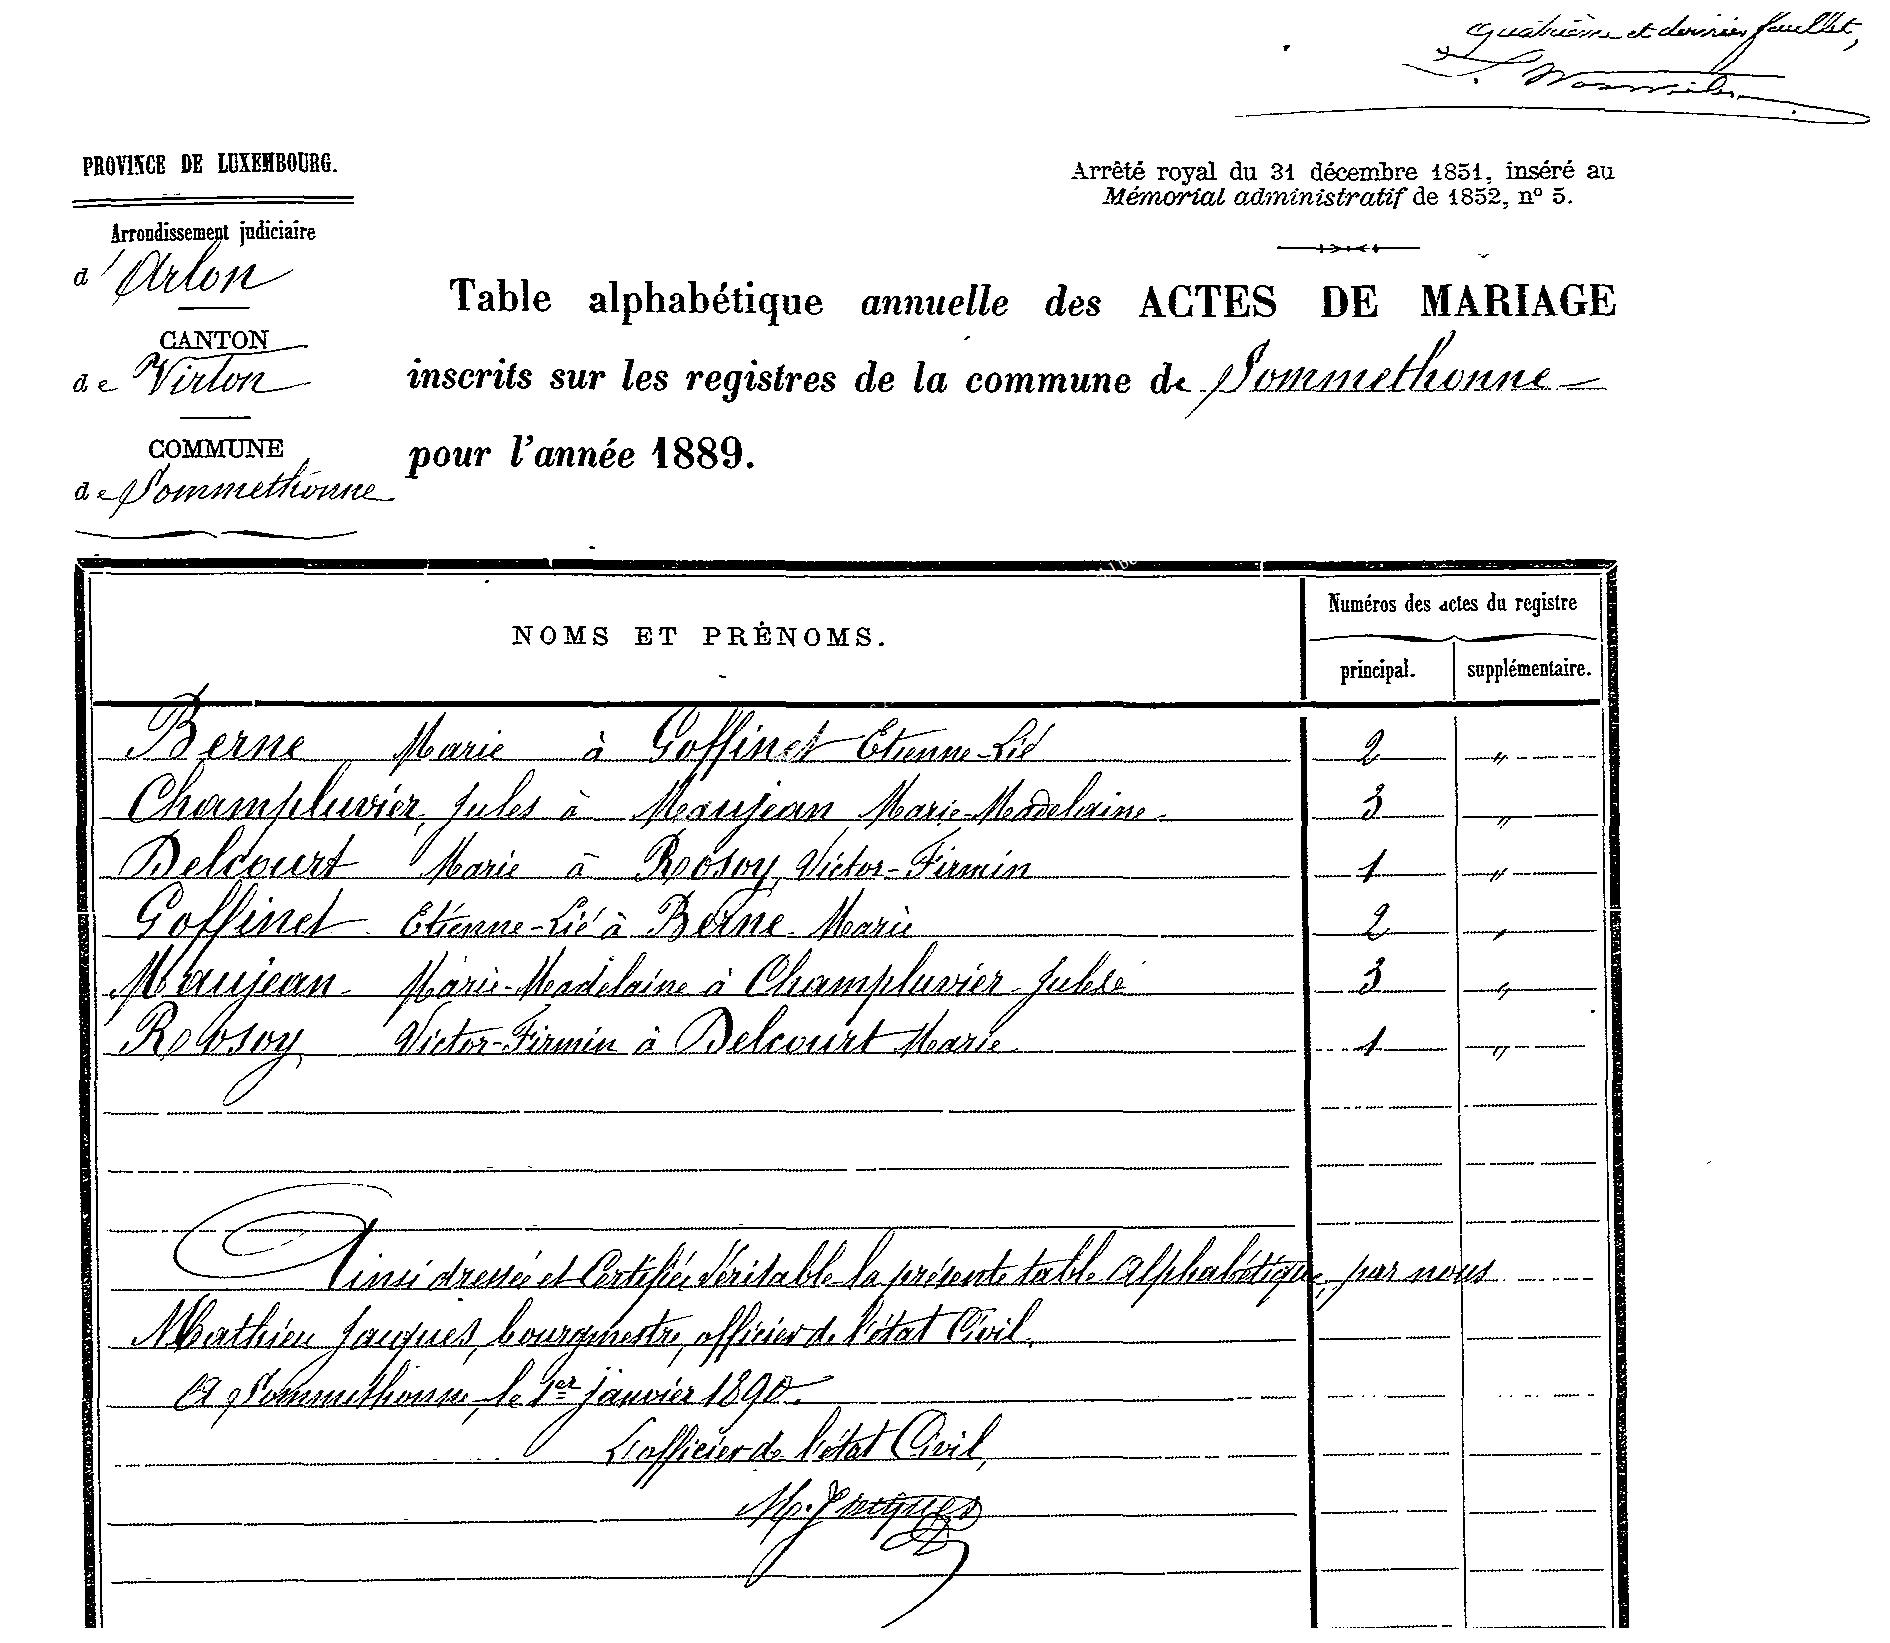 Quatrième et dernier feuillet,
PROVINCE DE LUXEMBOURG.
Arrondissement judiciaire
d'Arlon
CANTON
de Virton
COMMUNE
de Sommethonne
Arrêté royal du 31 décembre 1851, inséré au
Mémorial administratif de 1852, nº 5.
Table alphabétique annuelle des ACTES DE MARIAGE
inscrits sur les registres de la commune de Sommethonne
pour l'année 1889.
NOMS ET PRÉNOMS.
Numéros des actes du registre
principal. supplémentaire.
Berne Marie à Goffinet Etienne-Lié 2 "
Champluvier, Jules à Maujean Marie-Madelaine. 3 "
Delcourt Marie à Rosoy, Victor-Firmin 1 "
Goffinet Etienne-Lié à Berne Marie 2 "
Maujean Marie-Madelaine à Champluvier Jules 3 "
Rosoy Victor-Firmin à Delcourt Marie 1 "
Ainsi dressée et Certifiée Véritable la présente table alphabétique, par nous
Mathieu Jacques, bourgmestre, officier de l'état Civil.
A Sommethonne, le 1er janvier 1890.
L'officier de l'état Civil,
M. Jacques